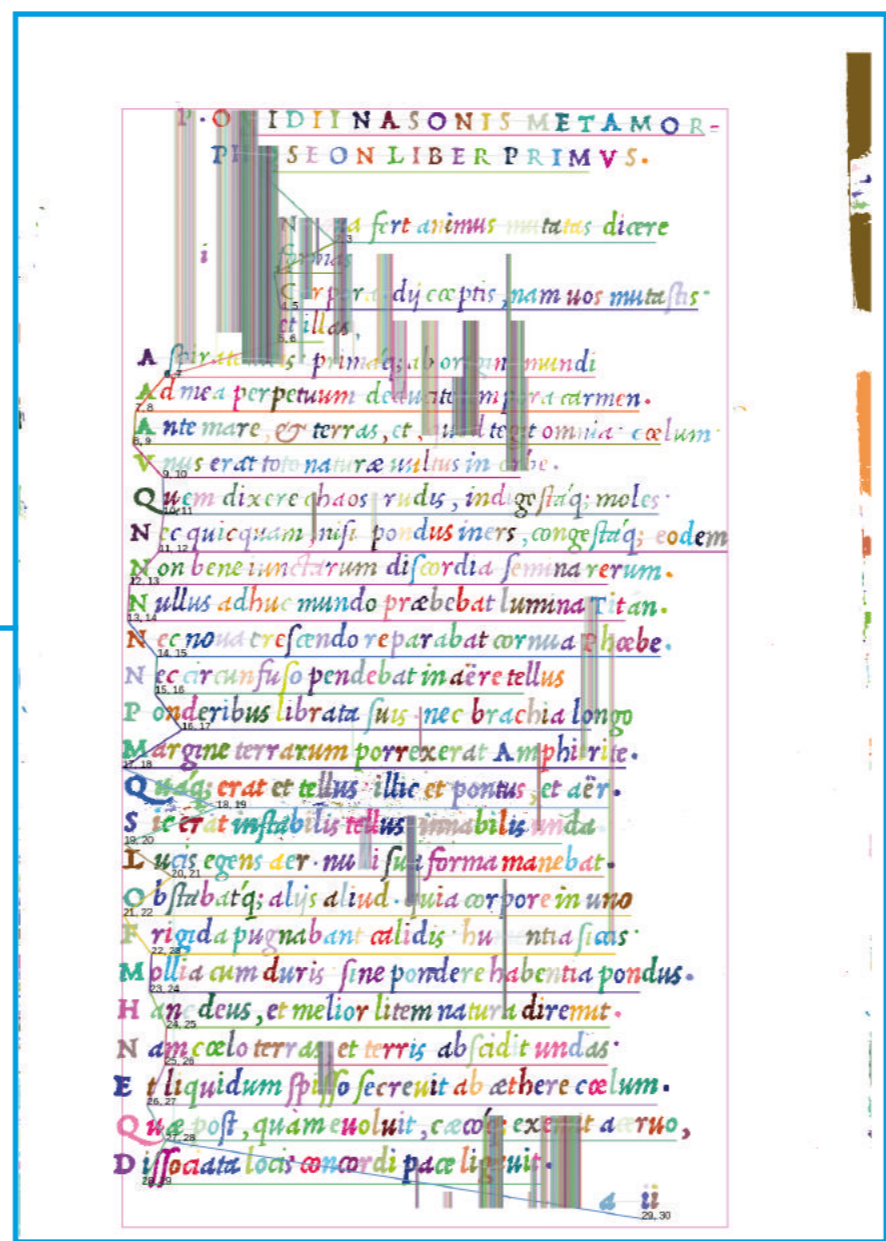 P. OVIDII NASONIS METAMOR-
PHOSEON LIBER PRIMVS.
i N oua fert animus mutatas dicere
formas
Corpora. dij cœptis, nam uos mutaſtis
et illas,
2,3
4,5
5,6
A ſpirate meis: primáq; ab origine mundi
A d mea perpetuum deducite tempora carmen.
7, 8
A nte mare, & terras, et, quod tegit omnia cœlum
8, 9
V nus erat toto naturæ uultus in orbe.
9, 10
Q uem dixere chaos rudis, indigeſtáq; moles
10, 11
N ec quicquam, niſi pondus iners, congeſtáq; eodem
11, 12
N on bene iunctarum diſcordia ſemina rerum.
12, 13
N ullus adhuc mundo præbebat lumina Titan.
13, 14
N ec noua creſcendo reparabat cornua Phœbe.
14, 15
N ec circunfuſo pendebat in aëre tellus
15, 16
P onderibus librata ſuis nec brachia longo
16, 17
M argine terrarum porrexerat Amphitrite.
17, 18
Q uáq; erat et tellus illic et pontus, et aër.
18, 19
S ic erat inſtabilis tellus innabilis unda
19, 20
L ucis egens aer. nulli ſua forma manebat.
20, 21
O bſtabatq; alijs aliud. quia corpore in uno
21, 22
F rigida pugnabant calidis humentia ſiccis
22, 23
M ollia cum duris ſine pondere habentia pondus.
23, 24
H anc deus, et melior litem natura diremit.
24, 25
N am cœlo terras, et terris abſcidit undas
25, 26
E t liquidum ſpiſſo ſecreuit ab æthere cœlum.
26, 27
Q uæ poſt, quàm euoluit, cæcóq; exemit aceruo,
27, 28
D iſſociata locis concordi pace liguit.
28, 29
a ii
29, 30